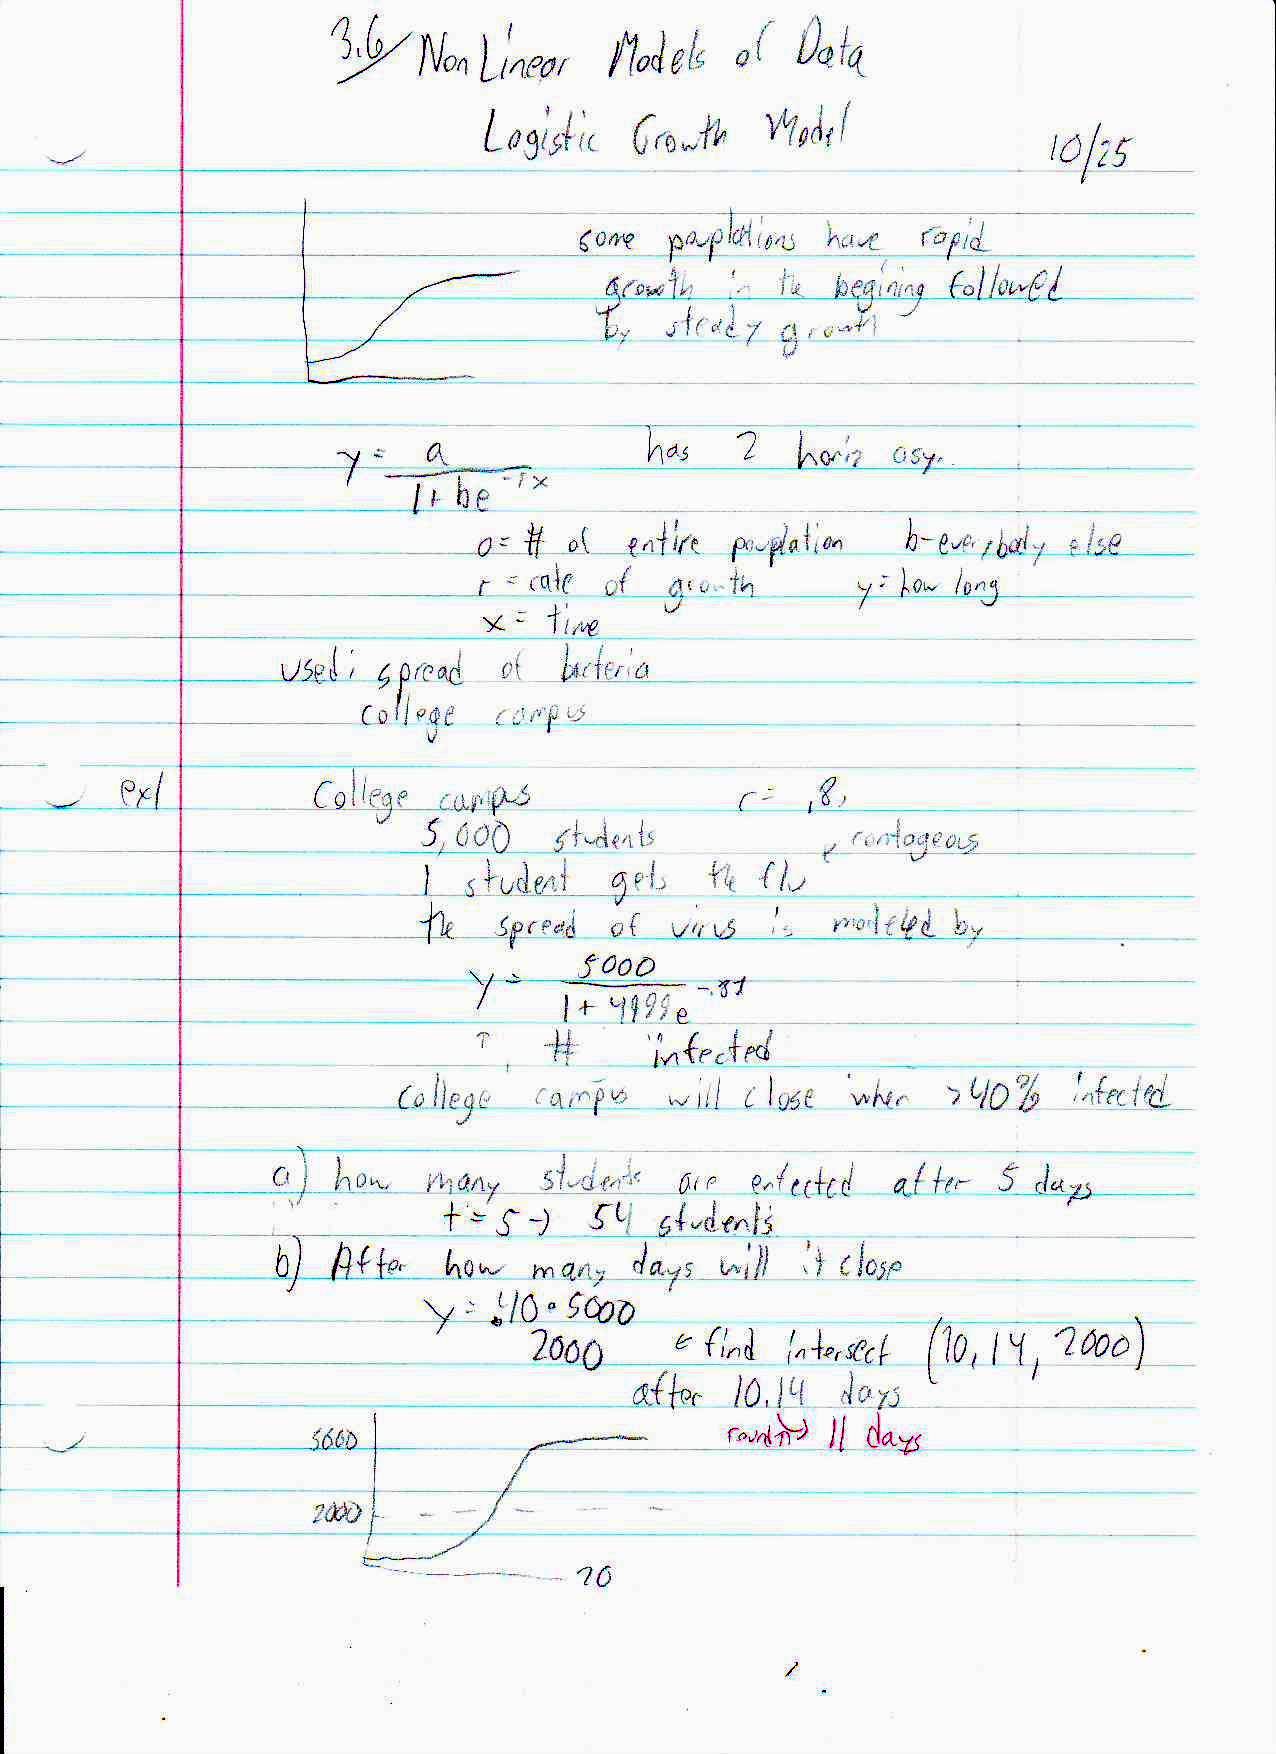 3.6/ Non Linear Models of Data
Logistic Growth Model
10/25
some pouplations have rapid
growth in the begining followed
by steady growth
y = a / 1 + be^-rx has 2 horiz asy.
a = # of entire pouplation b-everybody else
r = rate of growth y = how long
x = time
used: spread of bacteria
college campus
ex1 College campus r = .8,
5,000 students contageous
1 student gets the flu
the spread of virus is modeled by
y = 5000 / 1 + 4999e^-.8t
↑ # infected
College campus will close when >40% infected
a) how many students are enfected after 5 days
t = 5 → 54 students
b) After how many days will it close
y = .40 • 5000
2000 ← find intersect (10.14, 2000)
after 10.14 days
round → 11 days
5000
2000
20